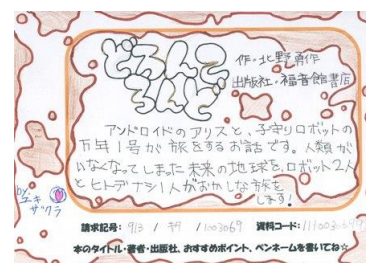 どろんころんど
作・北野勇作
出版社・福音館書店
アンドロイドのアリスと、子守りロボットの
万年1号が旅をするお話です。人類が
いなくなってしまった未来の地球を、ロボット2人
とヒトデナシ1人がおかしな旅を
します!
by
ユキ
ザクラ
請求記号: 913 / キタ / 1003069 資料コード:
本のタイトル・著者・出版社、おすすめポイント、ペンネームを書いてね☆